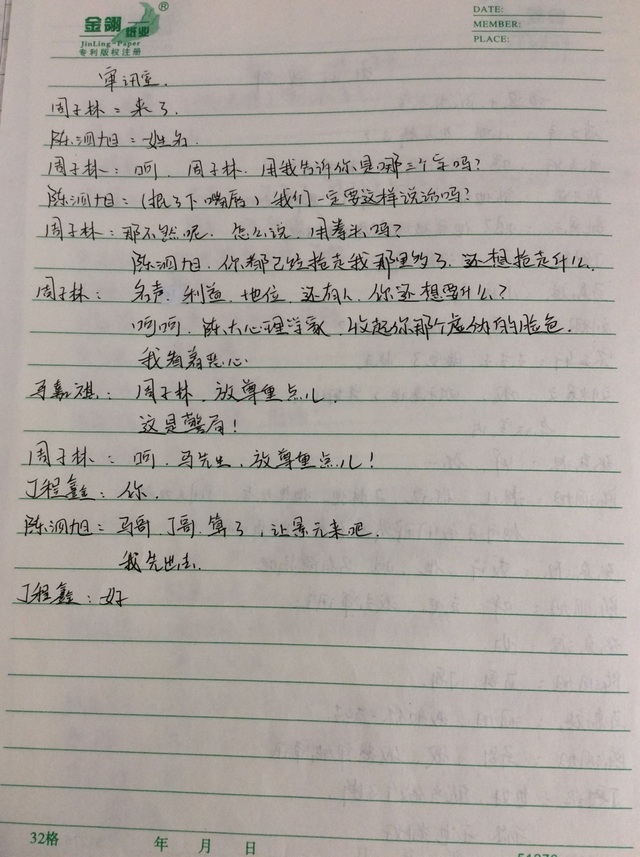 金翎纸业®
JinLing-Paper
专利版权注册
DATE:
MEMBER:
PLACE:
审讯室.
周子林:来了.
陈泗旭:姓名.
周子林:呵,周子林.用我告诉你是哪三个字吗?
陈泗旭:(抿了下嘴唇)我们一定要这样说话吗?
周子林:那不然呢.怎么说.用拳头吗?
陈泗旭.你都已经抢走我那么多了.还想抢走什么.
周子林:名声.利益.地位.还有人.你还想要什么?
呵呵.陈大心理学家.收起你那个虚伪的脸色.
我看着恶心.
马嘉祺:周子林,放尊重点儿.
这是警局!
周子林:呵.马先生.放尊重点儿!
丁程鑫:你.
陈泗旭:马哥.丁哥.算了,让景元来吧.
我先出去.
丁程鑫:好
32格
年 月 日